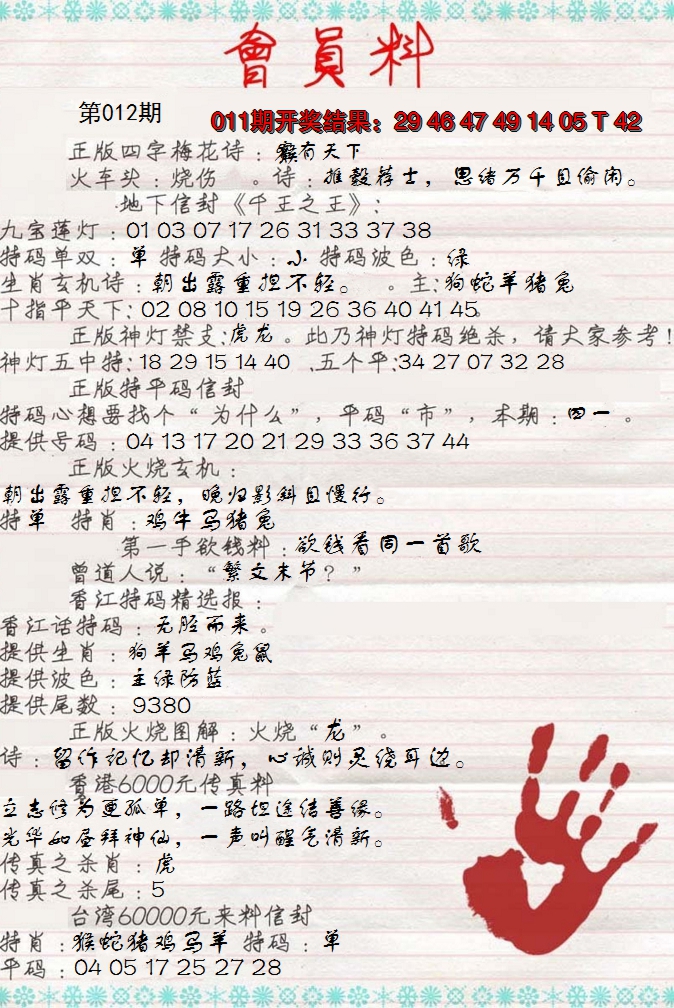 會員料
第012期
011期开奖结果：29 46 47 49 14 05 T 42
正版四字梅花诗：猴有天下
火车头：烧伤 。诗：推毂荐士，思绪万千且偷闲。
地下信封《千王之王》：
九宝莲灯：01 03 07 17 26 31 33 37 38
特码单双：单 特码大小：小 特码波色：绿
生肖玄机诗：朝出露重担不轻。 。主:狗蛇羊猪兔
十指平天下：02 08 10 15 19 26 36 40 41 45。
正版神灯禁支:虎龙。此乃神灯特码绝杀，请大家参考!
神灯五中特:18 29 15 14 40 .五个平:34 27 07 32 28
正版特平码信封
特码心想要找个“为什么”，平码“市”，本期：四一。
提供号码：04 13 17 20 21 29 33 36 37 44
正版火烧玄机：
朝出露重担不轻，晚归影斜且慢行。
特单 特肖：鸡牛马猪兔
第一手欲钱料：欲钱看同一首歌
曾道人说：“繁文末节？”
香江特码精选报：
香江话特码：无胫而来。
提供生肖：狗羊马鸡兔鼠
提供波色：主绿防蓝
提供尾数：9380
正版火烧图解：火烧“龙”。
诗：留作记忆却清新，心诚则灵绕耳边。
香港6000元传真料
立志修为更孤单，一路坦途结善缘。
光华如昼拜神仙，一声叫醒气清新。
传真之杀肖：虎
传真之杀尾：5
台湾60000元来料信封
特肖：猴蛇猪鸡马羊 特码：单
平码：04 05 17 25 27 28